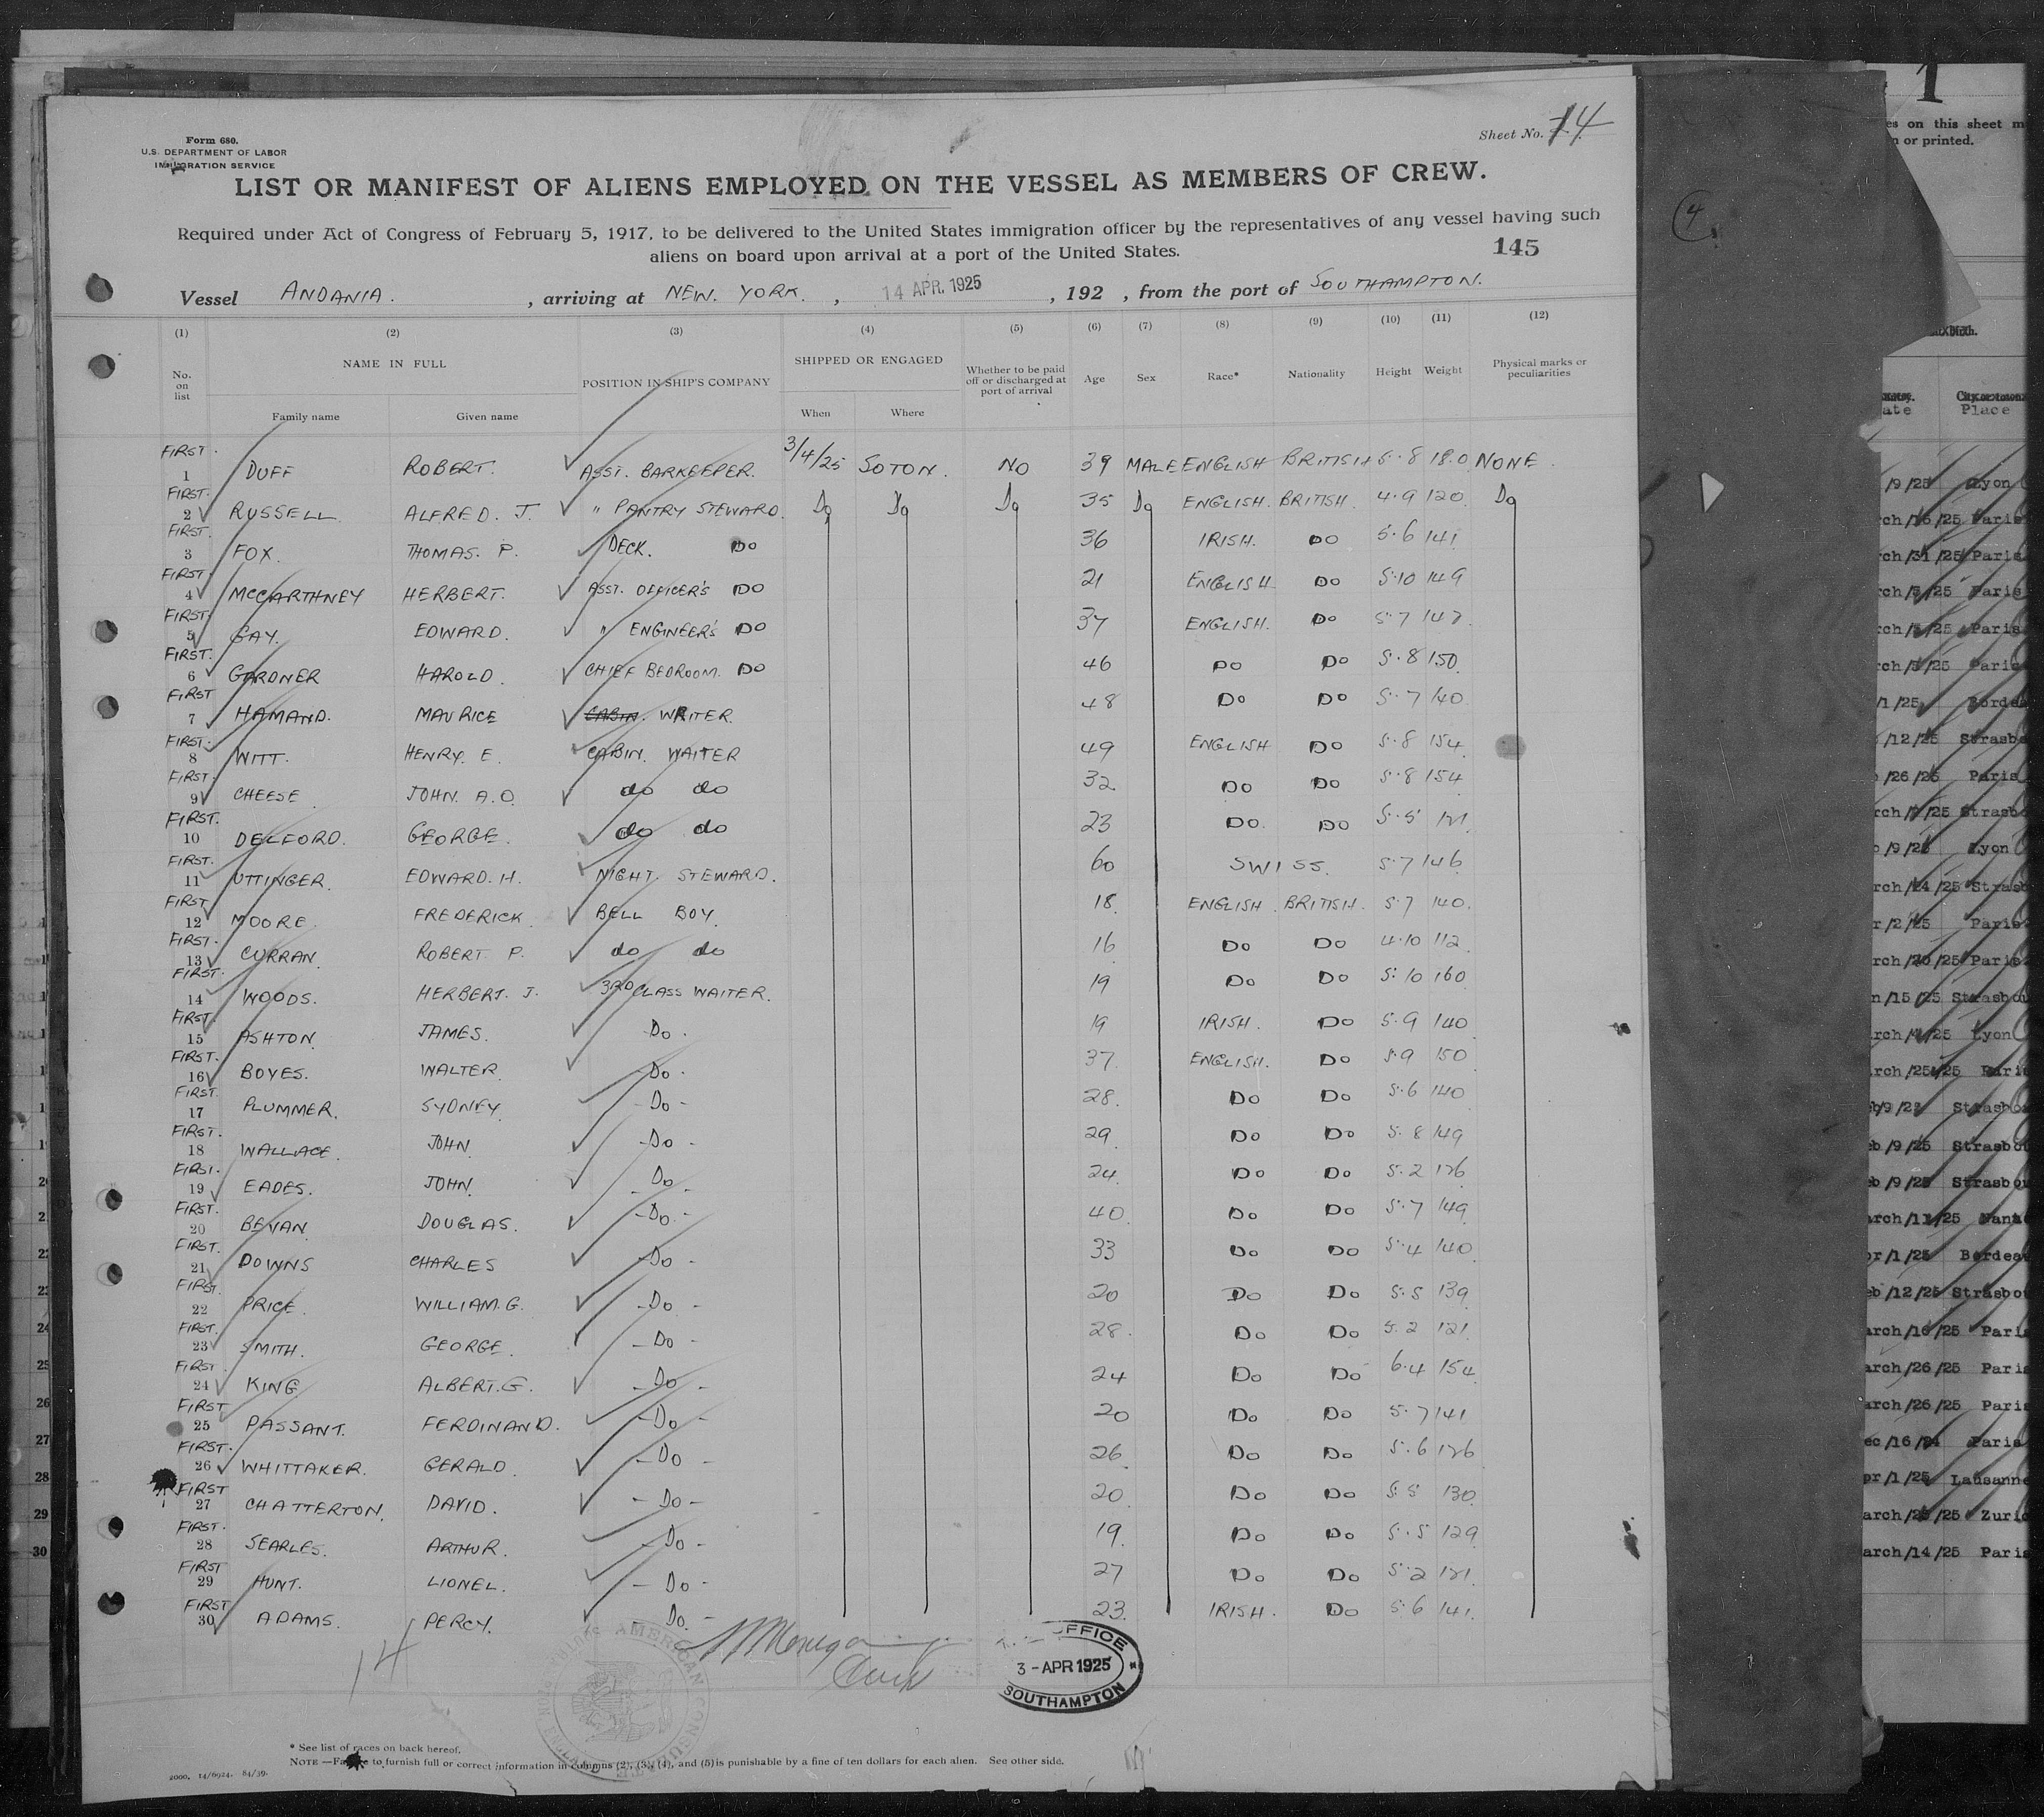 Form 680.
U.S. DEPARTMENT OF LABOR
IMMIGRATION SERVICE
Sheet No. 14
LIST OR MANIFEST OF ALIENS EMPLOYED ON THE VESSEL AS MEMBERS OF CREW.
Required under Act of Congress of February 5, 1917, to be delivered to the United States immigration officer by the representatives of any vessel having such
aliens on board upon arrival at a port of the United States.
145
Vessel ANDANIA. , arriving at NEW. YORK. , 14 APR. 1925 , 192 , from the port of SOUTHAMPTON.
(1) (2) (3) (4) (5) (6) (7) (8) (9) (10) (11) (12)
No. on list NAME IN FULL POSITION IN SHIP'S COMPANY SHIPPED OR ENGAGED Whether to be paid off or discharged at port of arrival Age Sex Race* Nationality Height Weight Physical marks or peculiarities
Family name Given name When Where
FIRST. 1 DUFF ROBERT. ASST. BARKEEPER. 3/4/25 SOTON. NO 39 MALE ENGLISH BRITISH 5.8 180 NONE.
FIRST. 2 RUSSELL ALFRED. J. " PANTRY STEWARD. Do Do Do 35 Do ENGLISH. BRITISH. 4.9 120 Do
FIRST. 3 FOX. THOMAS. P. DECK. DO 36 IRISH. DO 5.6 141
FIRST. 4 McCARTHNEY HERBERT. ASST. OFFICER'S DO 21 ENGLISH DO 5.10 149
FIRST. 5 GAY. EDWARD. " ENGINEER'S DO 37 ENGLISH. DO 5.7
FIRST. 6 GARDNER HAROLD. CHIEF BEDROOM. DO 46 DO DO 5.8 150
FIRST 7 HAMAND. MAURICE CABIN. WRITER. 48 DO DO 5.7 140
FIRST. 8 WITT. HENRY. E. CABIN. WAITER 49 ENGLISH DO 5.8 154
FIRST. 9 CHEESE JOHN. A.O. do do 32 DO DO 5.8 154
FIRST. 10 DELFORD. GEORGE. do do 23 DO. DO 5.5 121
FIRST. 11 UTTINGER. EDWARD. H. NIGHT. STEWARD. 60 SWISS. 5.7 146
FIRST 12 MOORE FREDERICK BELL BOY. 18. ENGLISH. BRITISH. 5.7 140.
FIRST. 13 CURRAN. ROBERT. P. do do 16 DO DO 4.10 112
FIRST. 14 WOODS. HERBERT. J. 3RD CLASS WAITER. 19 DO DO 5.10 160
FIRST. 15 ASHTON. JAMES. Do. 19 IRISH. DO 5.9 140
FIRST. 16 BOYES. WALTER. Do. 37. ENGLISH. DO 5.9 150
FIRST. 17 PLUMMER. SYDNEY. -Do- 28. DO DO 5.6 140
FIRST. 18 WALLACE. JOHN. -Do- 29. DO DO 5.8 149
FIRST. 19 EADES. JOHN. -Do- 24. DO DO 5.2 126
FIRST. 20 BEVAN. DOUGLAS. -Do- 40. DO DO 5.7 149
FIRST. 21 DOWNS CHARLES -Do- 33 DO DO 5.4 140
FIRST. 22 PRICE. WILLIAM. G. -Do- 20 DO DO 5.5 139
FIRST. 23 SMITH. GEORGE. -Do- 28. DO DO 5.2 121
FIRST 24 KING ALBERT. G. -Do- 24 DO DO 6.4 154
FIRST 25 PASSANT. FERDINAND. -Do- 20 DO DO 5.7 141
FIRST. 26 WHITTAKER. GERALD. -Do- 26. DO DO 5.6 126
FIRST 27 CHATTERTON. DAVID. -Do- 20. DO DO 5.5 130
FIRST. 28 SEARLES. ARTHUR. -Do- 19. DO DO 5.5 129
FIRST 29 HUNT. LIONEL. -Do- 27 DO DO 5.2 121
FIRST 30 ADAMS. PERCY. -Do- 23. IRISH. DO 5.6 141.
14
OFFICE
3-APR 1925
SOUTHAMPTON
AMERICAN
* See list of races on back hereof.
NOTE —Failure to furnish full or correct information in columns (2), (3), (4), and (5) is punishable by a fine of ten dollars for each alien. See other side.
2000. 14/6924. 84/39.
(4)
1
es on this sheet m
or printed.
ate Place
/9/25 Lyon
ch/16/25 Paris
ch/31/25 Paris
ch/5/25 Paris
ch/5/25 Paris
ch/5/25 Paris
/1/25 Bordea
/12/25 Strasbo
/26/25 Paris
Strasbo
Lyon
rch/24/25 Strasb
r/2/25 Paris
rch/20/25 Paris
n/15/25 Strasbou
Lyon
rch/25/25 Paris
Strasbo
eb/9/25 Strasbou
eb/9/25 Strasbou
arch/11/25 Nant
pr/1/25 Bordea
eb/12/25 Strasbou
arch/16/25 Paris
arch/26/25 Paris
arch/26/25 Paris
ec/16/24 Paris
pr/1/25 Lausanne
arch/25/25 Zuric
arch/14/25 Paris